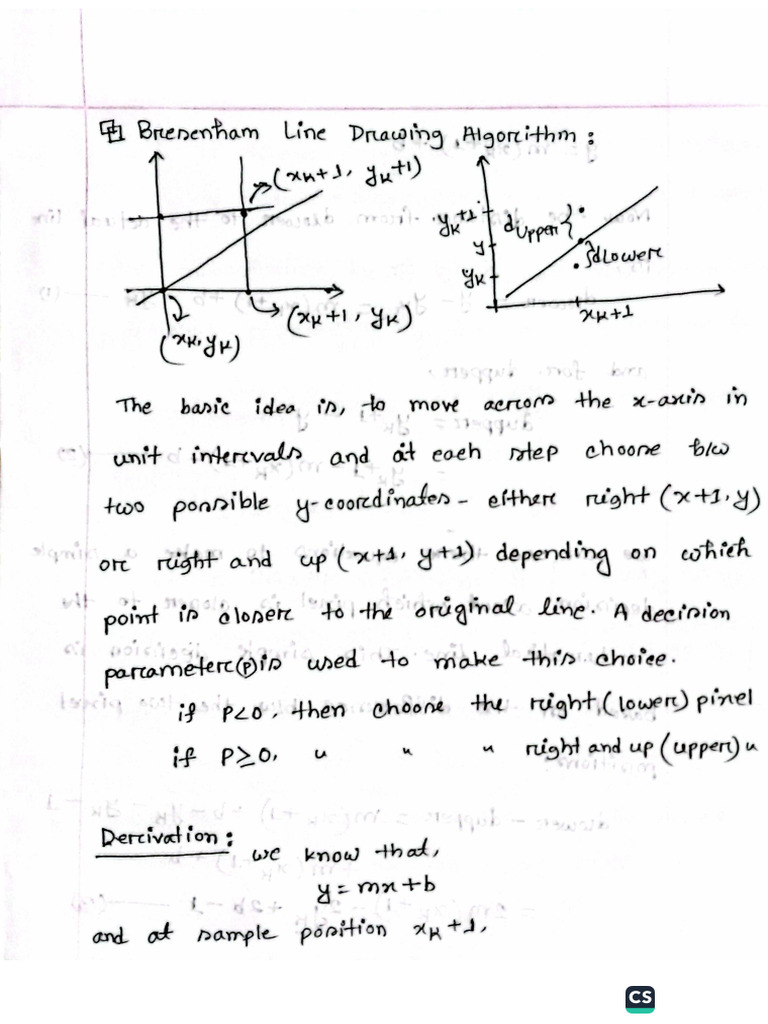 Bresenham Line Drawing Algorithm:
(xₖ+1, yₖ+1)
(xₖ+1, yₖ)
(xₖ, yₖ)
yₖ+1
dupper
y
dLower
yₖ
xₖ+1
The basic idea is, to move across the x-axis in
unit intervals and at each step choose b/w
two possible y-coordinates - either right (x+1, y)
or right and up (x+1, y+1) depending on which
point is closer to the original line. A decision
parameter(p) is used to make this choice.
if P<0, then choose the right (lower) pixel
if P≥0, u u u right and up (upper) u
Derivation: we know that,
y = mx+b
and at sample position xₖ+1,
CS